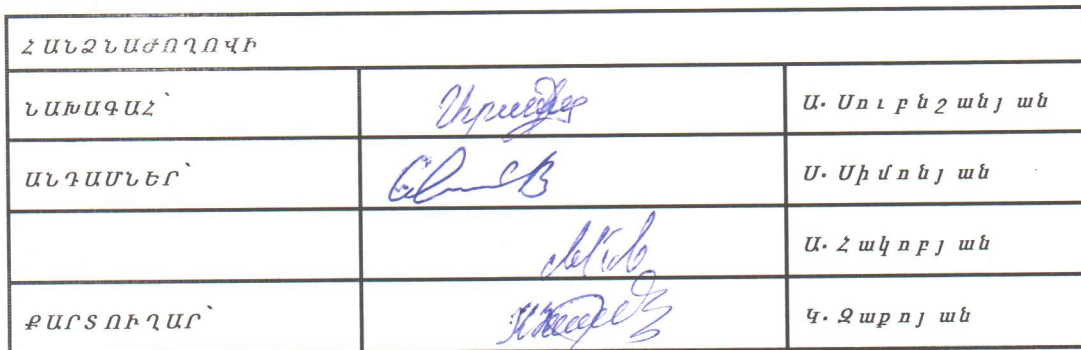 ՀԱՆՁՆԱԺՈՂՈՎԻ
ՆԱԽԱԳԱՀ՝ Ա. Սուքնշանյան
ԱՆԴԱՄՆԵՐ՝ Ս. Սիմոնյան
Ա. Հակոբյան
ՔԱՐՏՈՒՂԱՐ՝ Կ. Զաքոյան